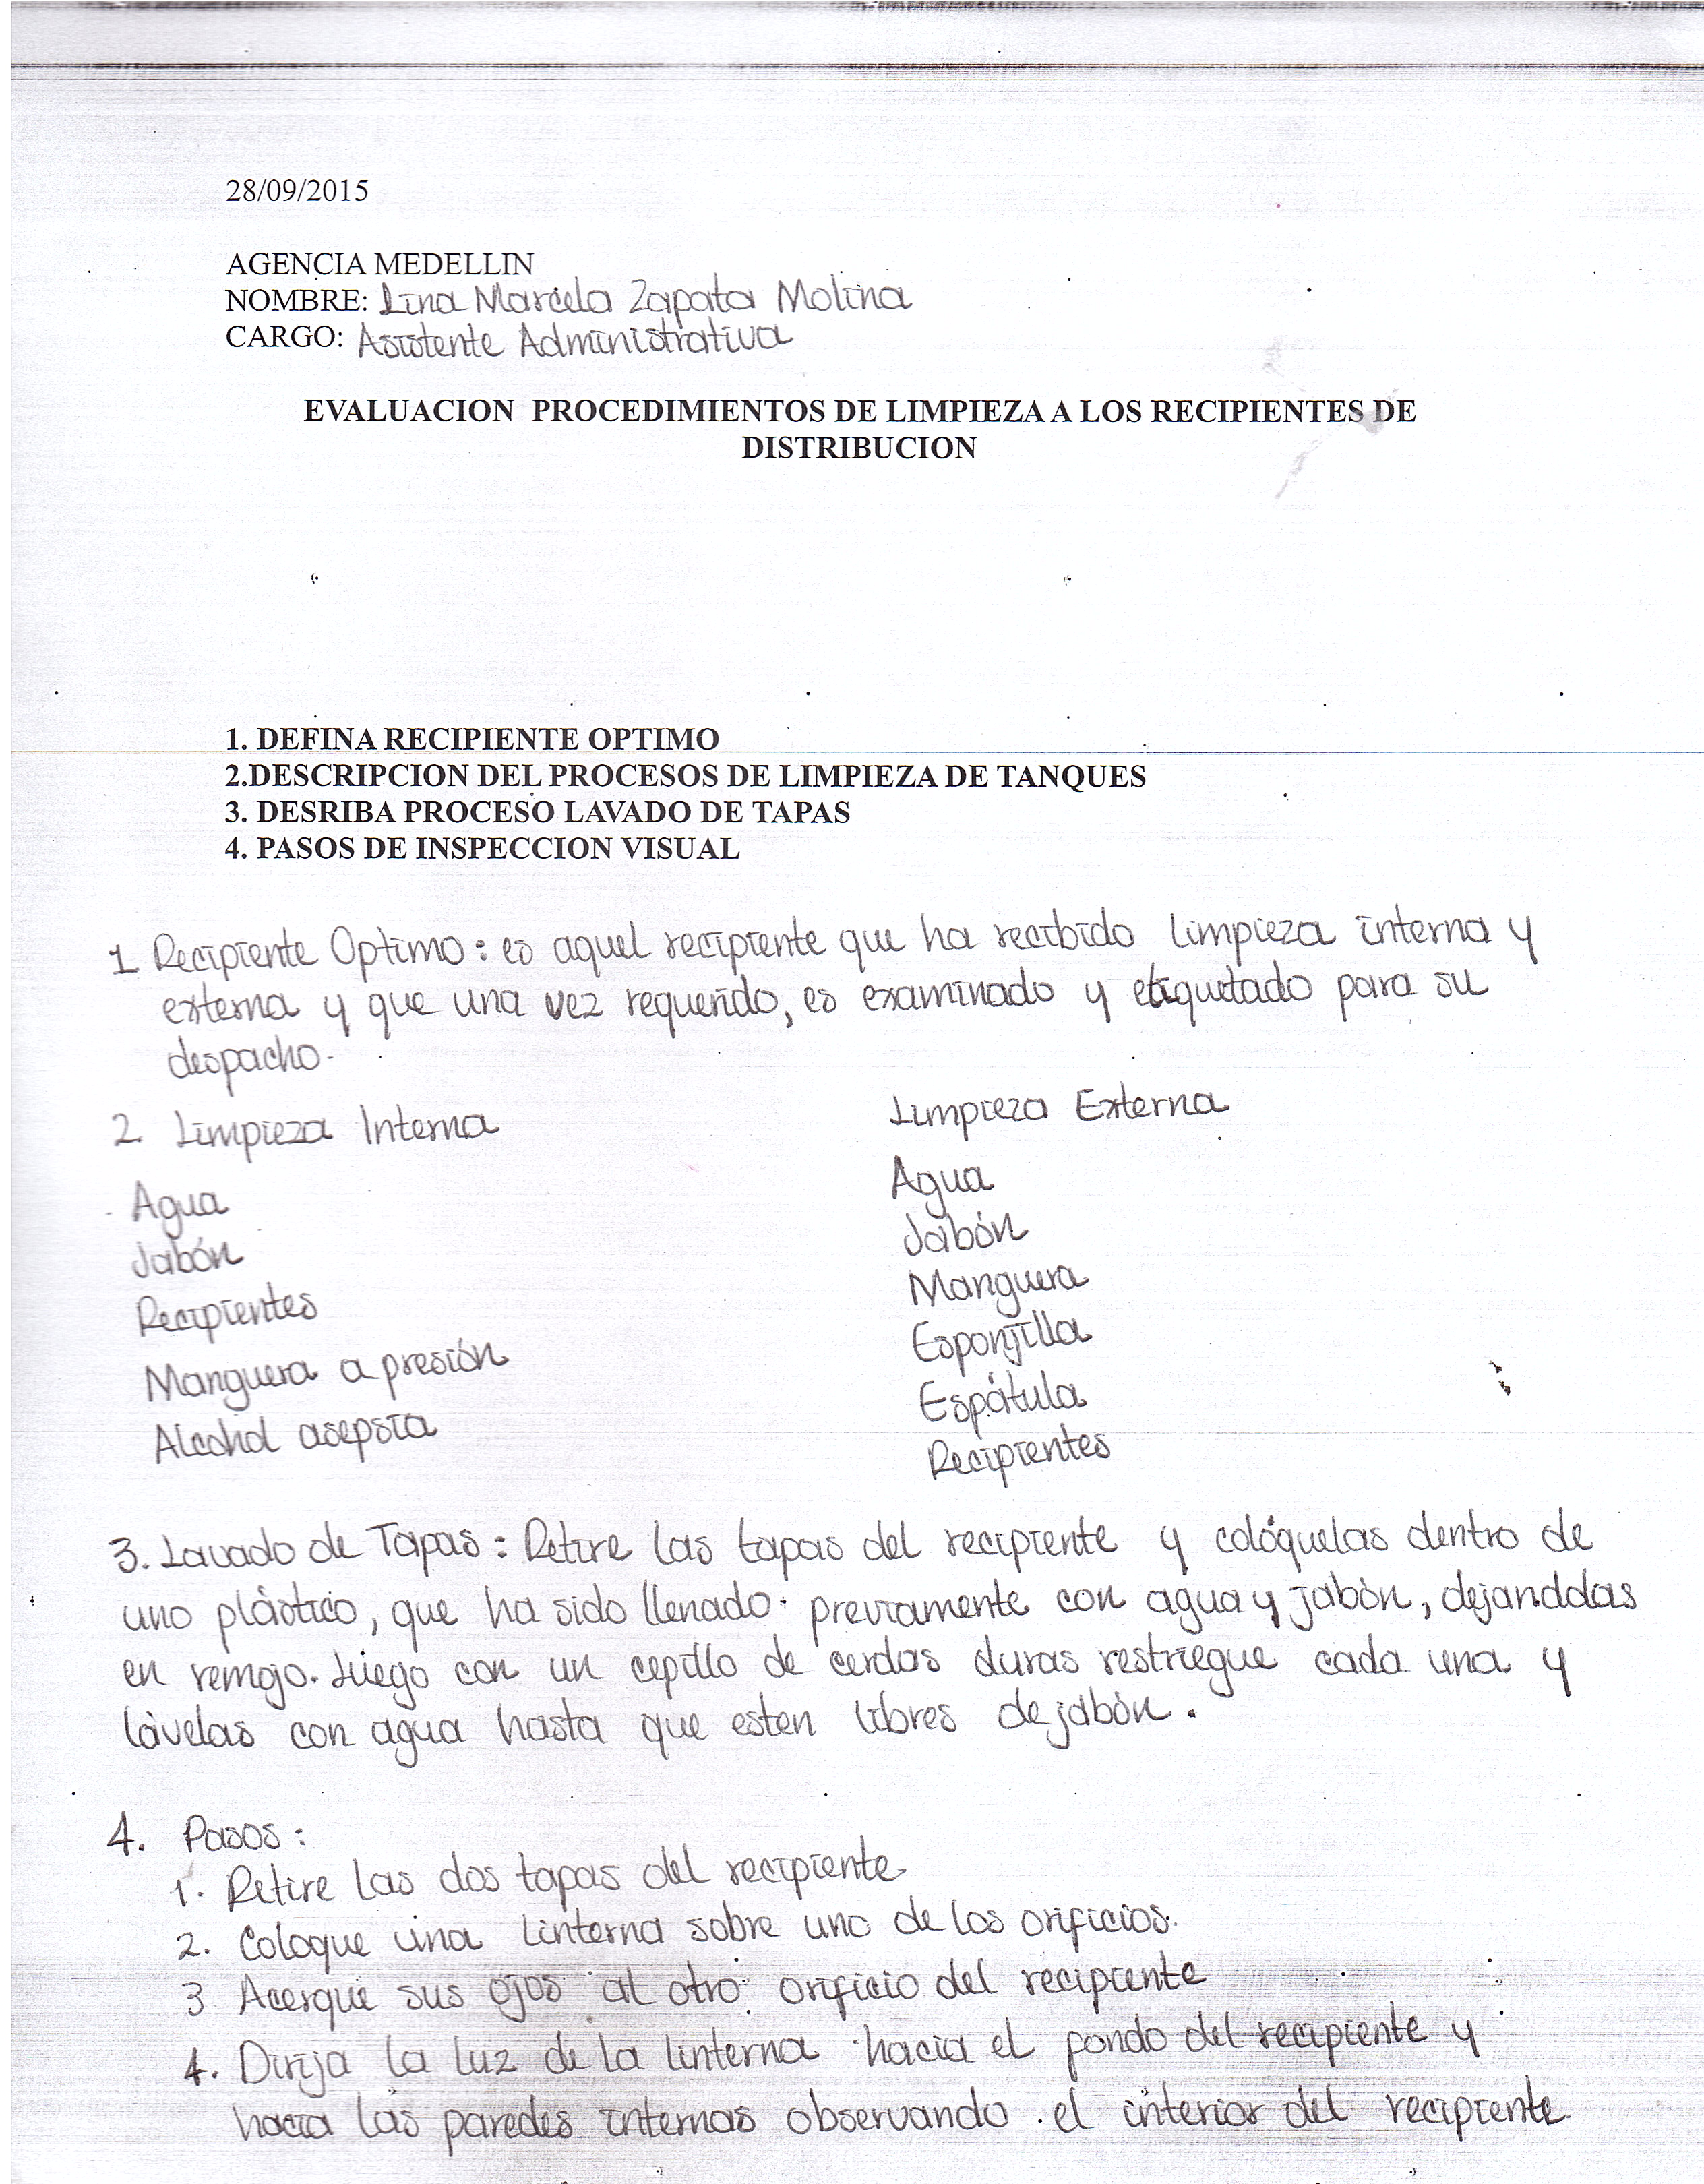 28/09/2015
AGENCIA MEDELLIN
NOMBRE: Lina Marcela Zapata Molina
CARGO: Asistente Administrativa
EVALUACION PROCEDIMIENTOS DE LIMPIEZA A LOS RECIPIENTES DE
DISTRIBUCION
1. DEFINA RECIPIENTE OPTIMO
2.DESCRIPCION DEL PROCESOS DE LIMPIEZA DE TANQUES
3. DESRIBA PROCESO LAVADO DE TAPAS
4. PASOS DE INSPECCION VISUAL
1 Recipiente Optimo: es aquel recipiente que ha recibido limpieza interna y
externa y que una vez requerido, es examinado y etiquetado para su
despacho.
2. Limpieza Interna
Agua
Jabón
Recipientes
Manguera a presión
Alcohol asepsia
Limpieza Externa
Agua
Jabón
Manguera
Esponjilla
Espátula
Recipientes
3. Lavado de Tapas: Retire las tapas del recipiente y colóquelas dentro de
uno plástico, que ha sido llenado previamente con agua y jabón, dejandolas
en remojo. Luego con un cepillo de cerdas duras restriegue cada una y
lávelas con agua hasta que esten libres de jabón.
4. Pasos:
1. Retire las dos tapas del recipiente
2. Coloque una linterna sobre uno de los orificios.
3 Acerque sus ojos al otro orificio del recipiente
4. Dirija la luz de la linterna hacia el fondo del recipiente y
hacia las paredes internas observando el interior del recipiente.